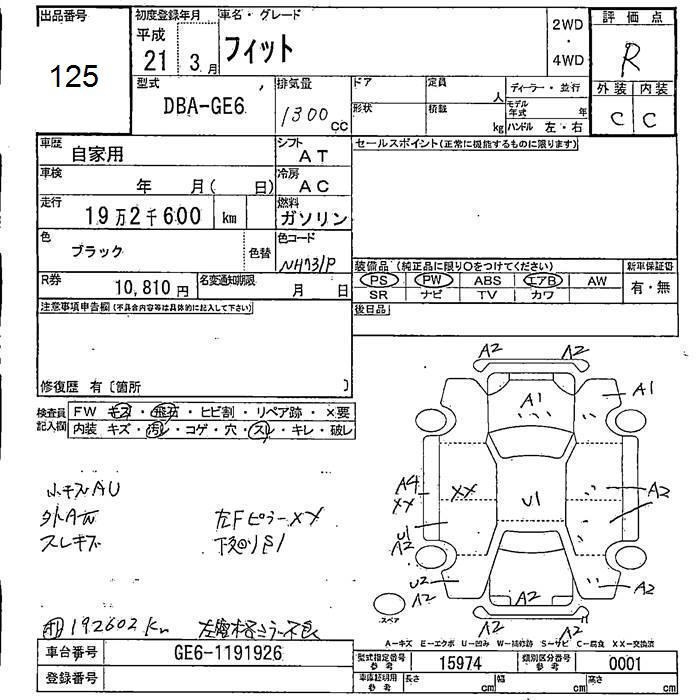 出品番号 初度登録年月 車名・グレード 2WD・4WD 評価点
125 平成21 3月 フィット R
型式 排気量 ドア 定員 人 ディーラー・並行 外装 内装
DBA-GE6 1300cc 形状 積載 kg モデル年式 年 C C
ハンドル 左・右
車歴 自家用 シフト AT セールスポイント(正常に機能するものに限ります)
車検 年 月( 日) 冷房 AC
走行 19万2千600 km 燃料 ガソリン
色 ブラック 色替 色コード NH731P
装備品(純正品に限り○をつけてください) 新車保証書
R券 10,810円 名変通知期限 月 日 PS PW ABS エアB AW 有・無
SR ナビ TV カワ
注意事項申告欄(不具合内容等は具体的に記入して下さい) 後日品
修復歴 有〔箇所 〕
検査員記入欄 FW キズ・飛石・ヒビ割・リペア跡・×要
内装 キズ・汚レ・コゲ・穴・スレ・キレ・破レ
A2 A2
A1 A1
A4 XX XX U1 A2
U1 A2
U2 A2 A2 A2
A2 A2
小キズAU
左FピラーXX
スレキズ
スペア
192602Km
A-キズ E-エクボ U-凹み W-補修跡 S-サビ C-腐食 XX-交換済
車台番号 GE6-1191926 型式指定番号 参考 15974 類別区分番号 参考 0001
登録番号 車庫証明用 参考 長さ cm 幅 cm 高さ cm